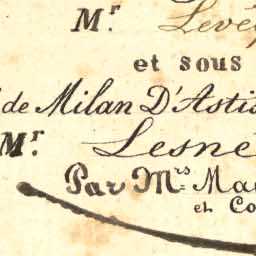 Mr. Levê
et sous
de Milan D'Asti
Mr. Lesne
Par Ms Ma
et Co